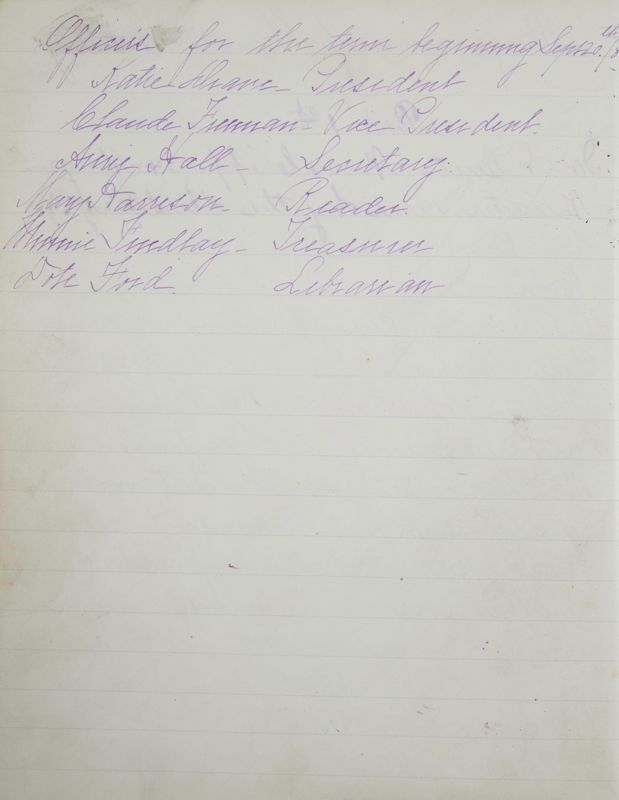 Officers for the term beginning Sept 20th
Katie Shane - President
Claude Freeman Vice President.
Annie Hall - Secretary.
Mary Harrison - Reader.
Minnie Findlay - Treasurer
Dote Ford. Librarian